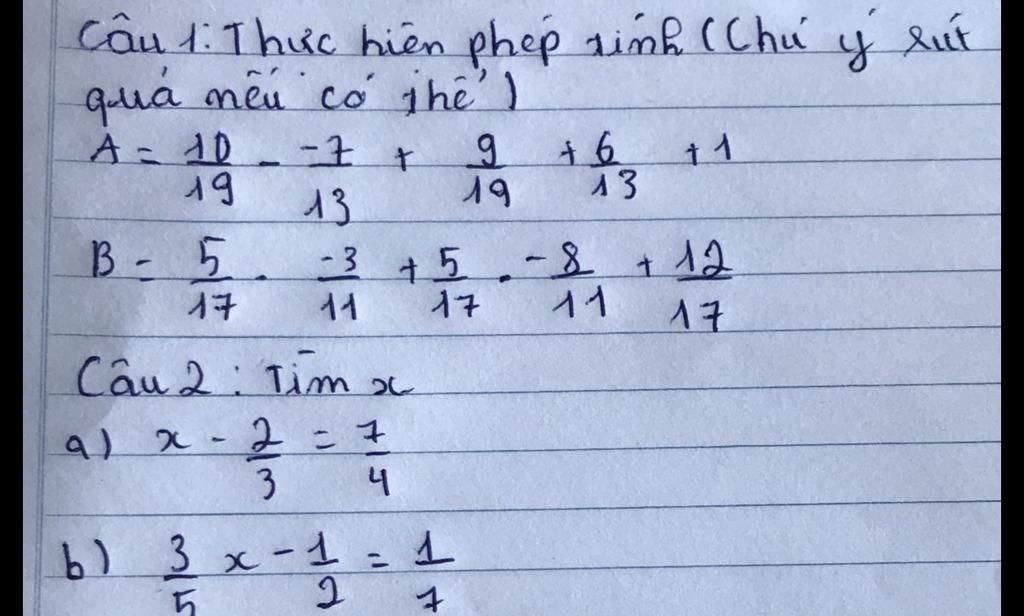 Câu 1: Thực hiện phép tính (Chú ý rút
quả nếu có thể)
A = 10/19 - -7/13 + 9/19 + 6/13 + 1
B = 5/17 . -3/11 + 5/17 . -8/11 + 12/17
Câu 2: Tìm x
a) x - 2/3 = 7/4
b) 3/5 x - 1/2 = 1/7